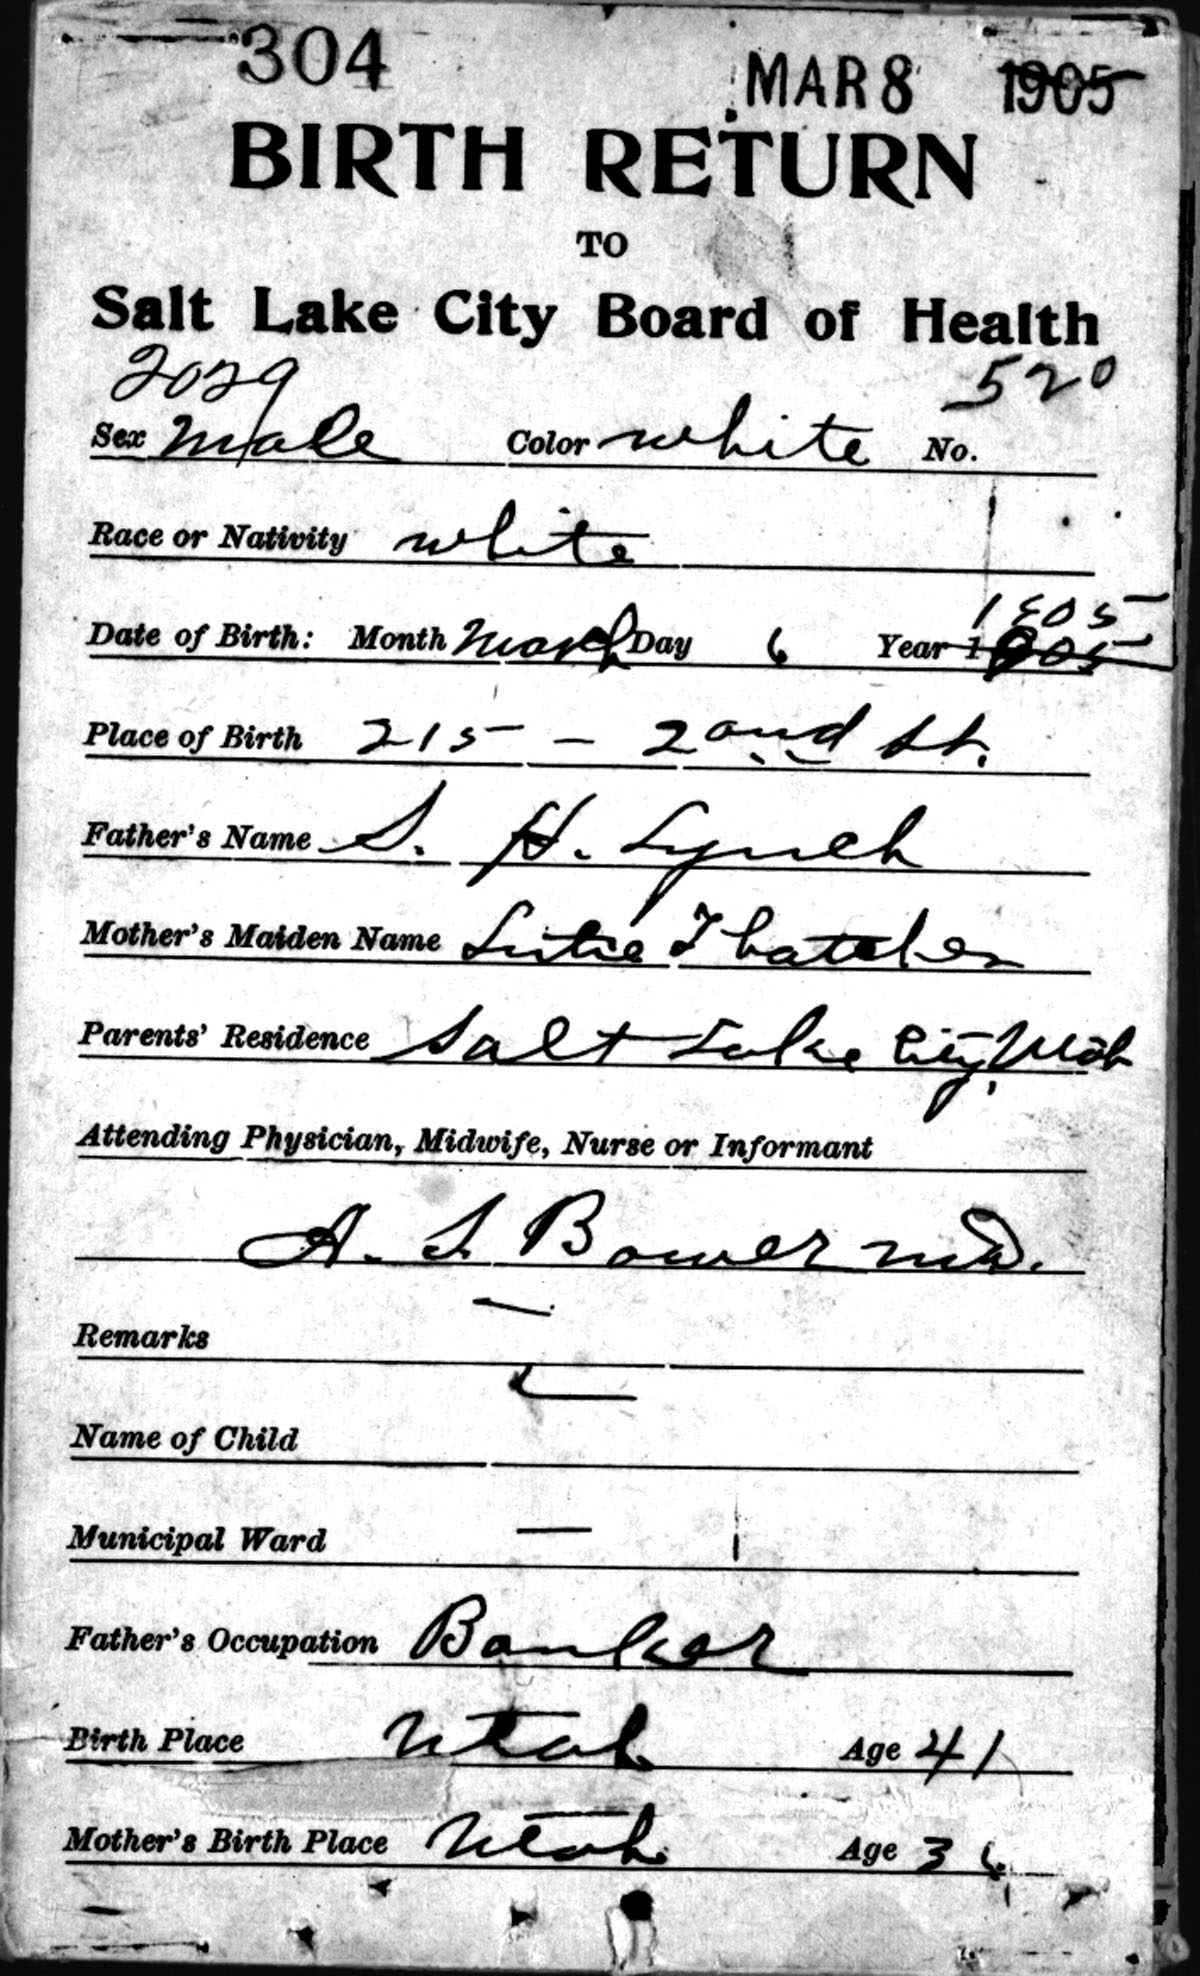 304 MAR 8 1905
BIRTH RETURN
TO
Salt Lake City Board of Health
2029 520
Sex Male Color white No.
Race or Nativity white
1905
Date of Birth: Month March Day 6 Year 1905
Place of Birth 215 - 2nd St.
Father's Name S. H. Lynch
Mother's Maiden Name Thatcher
Parents' Residence Salt Lake City, Utah
Attending Physician, Midwife, Nurse or Informant
A. S. Bower M.D.
Remarks —
Name of Child —
Municipal Ward —
Father's Occupation Banker
Birth Place Utah Age 41
Mother's Birth Place Utah Age 36